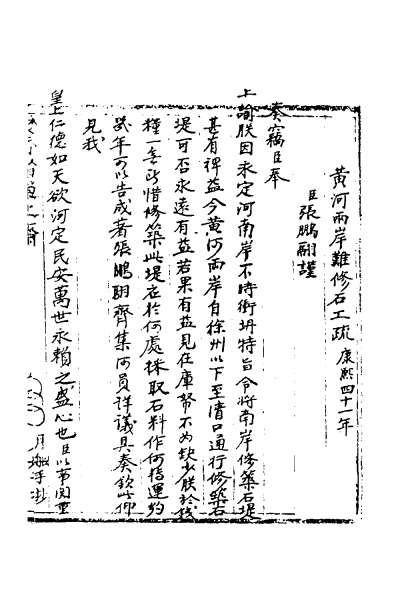 黃河兩岸難修石工疏康熙四十一年
臣張鵬翮謹
奏竊臣奉
上諭朕因永定河南岸不時衝坍特旨令將南岸修築石堤
甚有裨益今黃河兩岸自徐州以下至清口通行修築石
堤可否永遠有益若果有益見在庫帑不為缺少朕於錢
糧一無所惜修築此堤應於何處採取石料作何搬運約
幾年可以告成著張鵬翮齊集河員詳議具奏欽此仰
見我
皇上仁德如天欲河定民安萬世永賴之盛心也臣以事関重